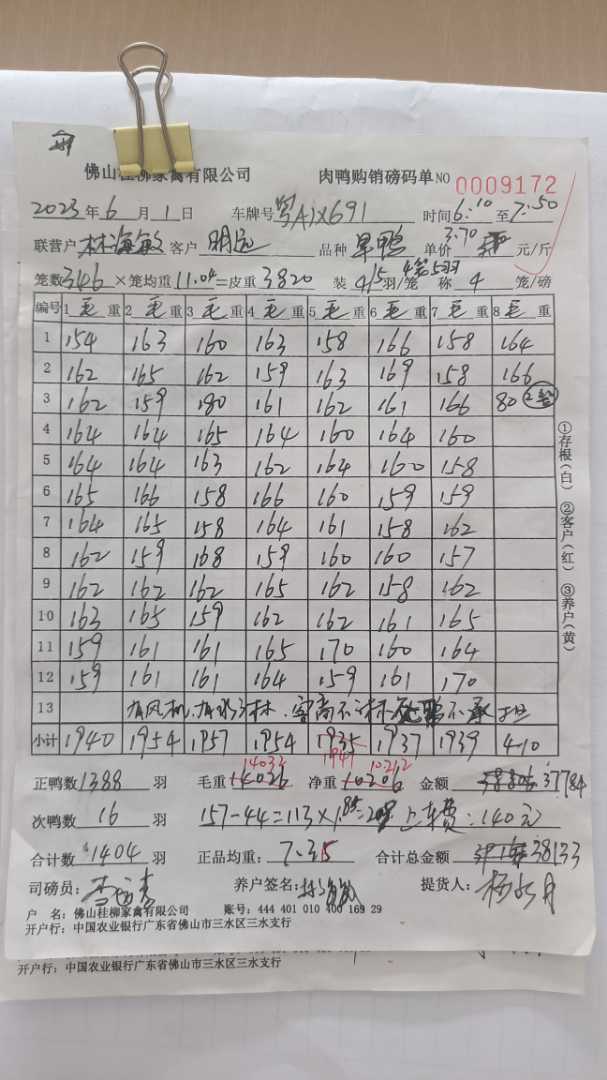 佛山桂柳家禽有限公司 肉鸭购销磅码单NO 0009172
2023年6月1日 车牌号粤A1X691 时间6:10至7:50
联营户林海敏 客户明远 品种旱鸭 单价3.70元/斤
笼数346×笼均重11.04=皮重3820 装4/5羽/笼 称4笼/磅
编号 1毛重 2毛重 3毛重 4毛重 5毛重 6毛重 7毛重 8毛重
1 154 163 160 163 158 166 158 164
2 162 165 162 159 163 169 158 166
3 162 159 180 161 162 161 166 80
4 164 164 165 164 160 164 160
5 164 164 163 162 164 160 158
6 165 166 158 166 160 159 159
7 164 165 158 164 161 158 162
8 162 159 168 159 160 160 157
9 162 162 162 165 162 158 162
10 163 165 159 162 162 161 165
11 159 161 161 165 170 160 164
12 159 161 161 164 159 161 170
13 有风机,有水
小计 1940 1954 1957 1954 1935 1937 1939 410
1941
14032 10212
正鸭数1388羽 毛重14026 净重10206 金额37784
次鸭数16羽 157-44=113× 上车费:140元
合计数1404羽 正品均重:7.35 合计总金额38133
司磅员: 养户签名:林海敏 提货人:
户 名:佛山桂柳家禽有限公司 账号:444 401 010 400 169 29
开户行:中国农业银行广东省佛山市三水区三水支行
开户行:中国农业银行广东省佛山市三水区三水支行
①存根(白) ②客户(红) ③养户(黄)